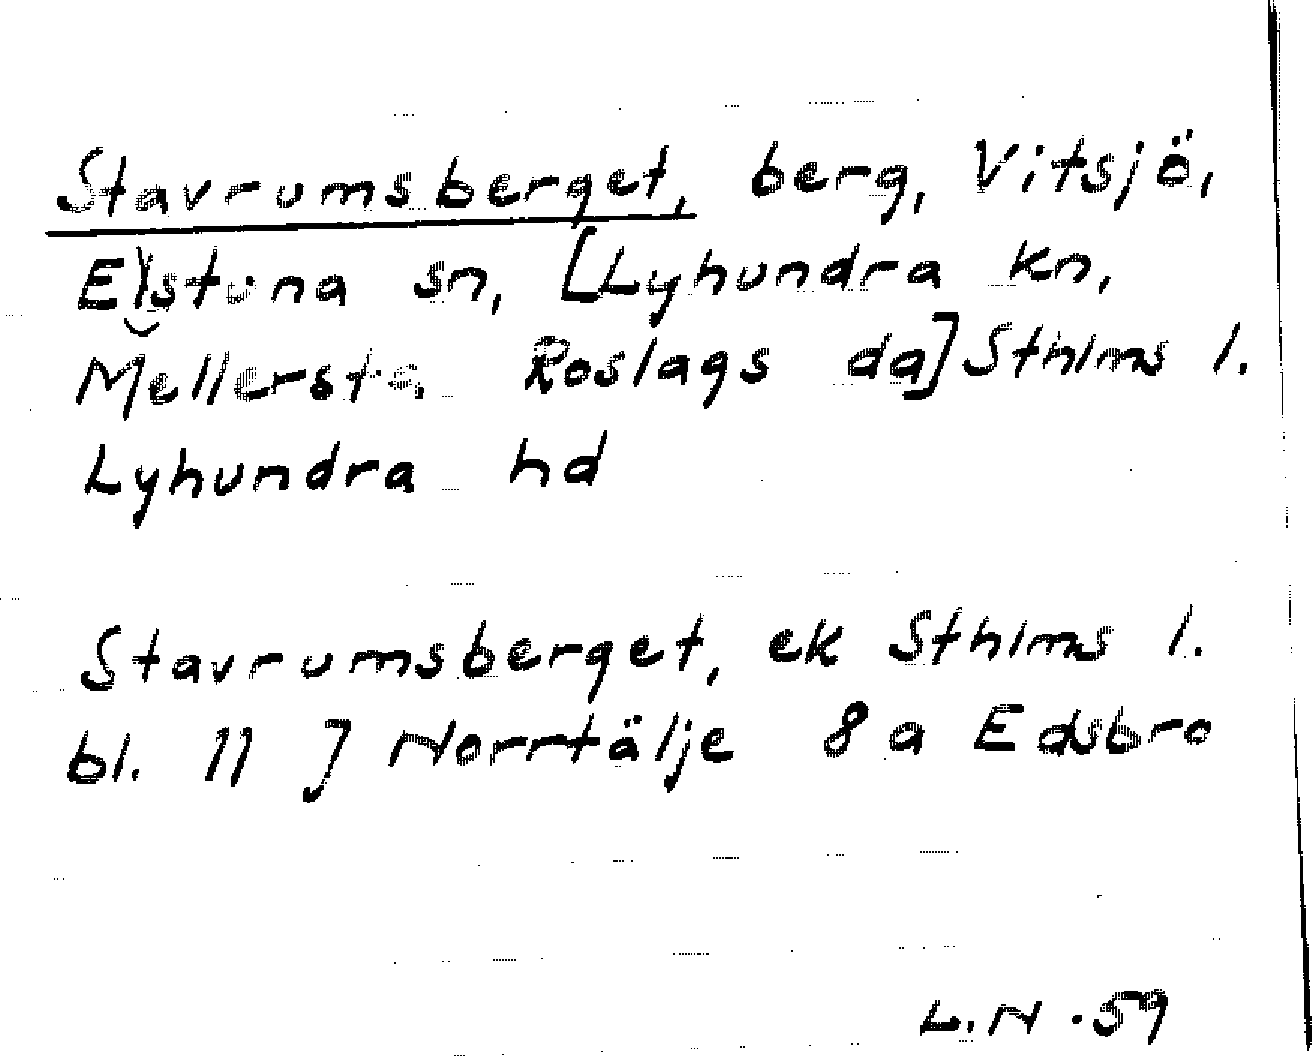 Stavrumsberget, berg, Vitsjö,
Estuna sn, [Lyhundra kn,
Mellersta Roslags da] Sthlms l.
Lyhundra hd
Stavrumsberget, ek Sthlms l.
bl. 11 J Norrtälje 8 a Edsbro
L.N. -59